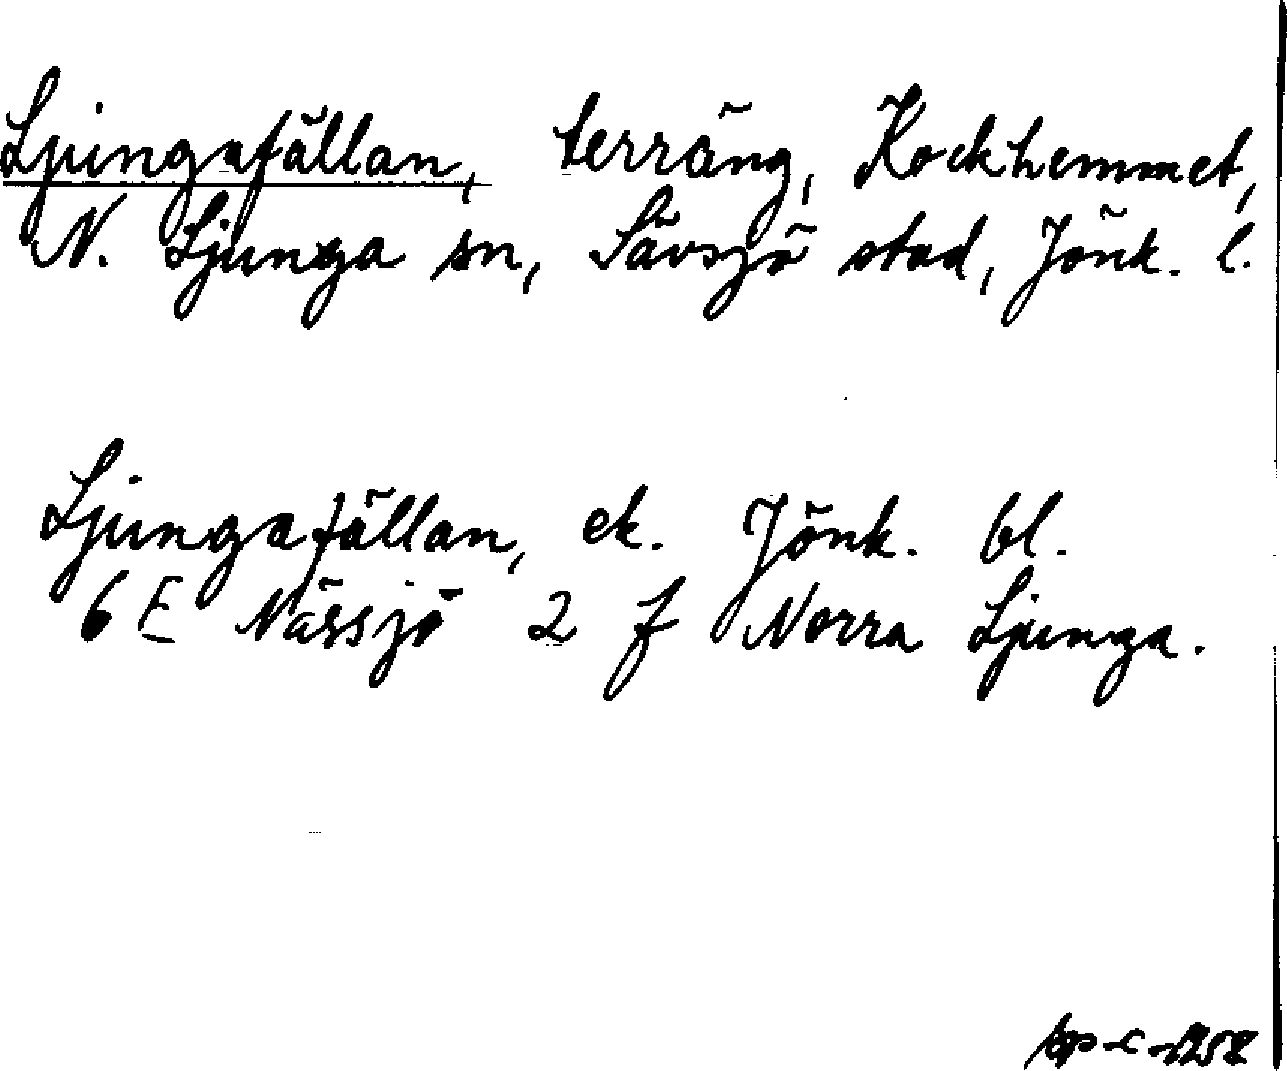 Ljungafällan, terräng, Kockhemmet,
N. Ljunga sn, Sävsjö stad, Jönk. l.
Ljungafällan, ek. Jönk. bl.
6 E Nässjö 2 f Norra Ljunga.